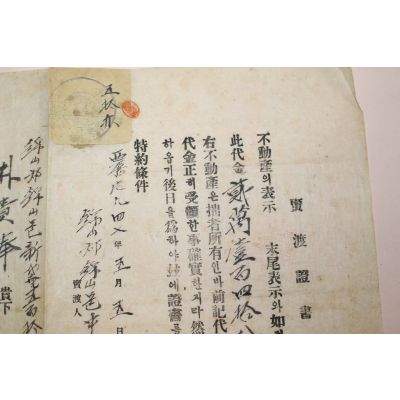 賣渡證書
不動產의表示 末尾表示와如
此代金貳萬壹百四拾
右不動產은拙者所有인바前記代
代金正히受領한事確實한지라然
하옵기後日을爲하야玆에證書를
特約條件
西紀一九四八年五月五日
錦山郡錦山邑
賣渡人
五拾
錦山郡錦山邑新
朴 奉 貴下